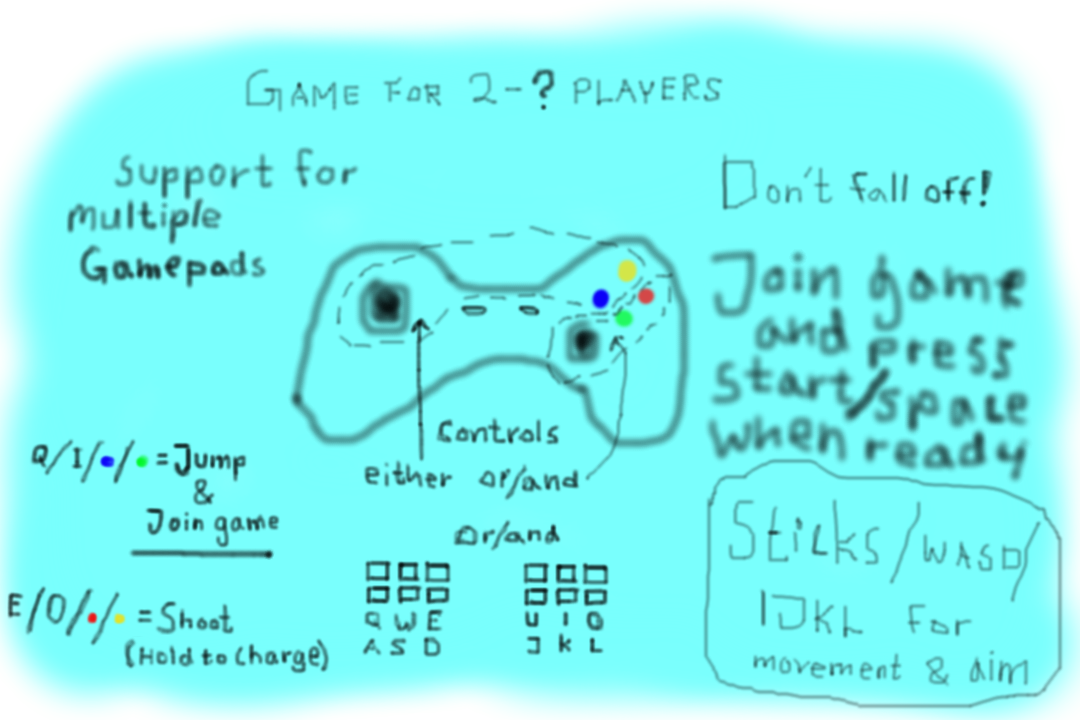 GAME FOR 2-? PLAYERS
Support for
multiple
Gamepads
Don't fall off!
Join game
and press
start/space
when ready
Controls
either or/and
Q/I/ / =Jump
&
Join game
E/O/ / =Shoot
(Hold to charge)
Or/and
Q W E
A S D
U I O
J K L
Sticks/WASD/
IJKL for
movement & aim